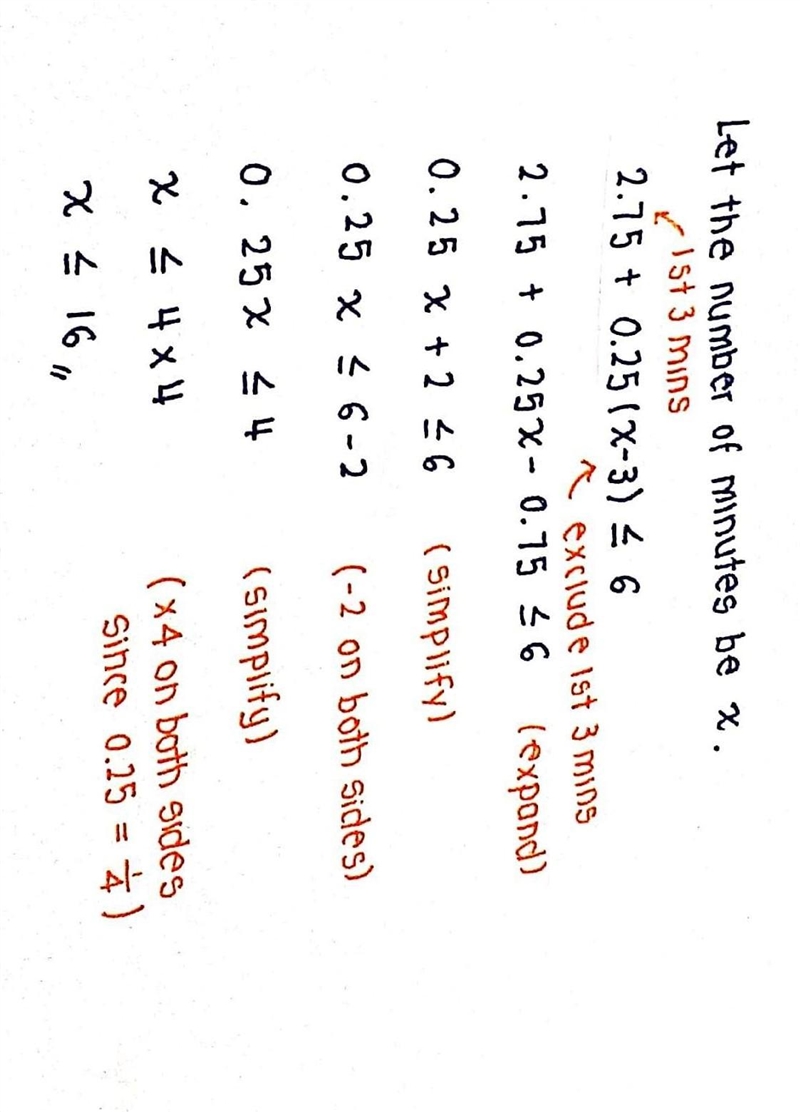 Let the number of minutes be x.
↙ 1st 3 mins
2.75 + 0.25(x-3) ≤ 6
↖ exclude 1st 3 mins
2.75 + 0.25x - 0.75 ≤ 6 (expand)
0.25 x + 2 ≤ 6 (simplify)
0.25 x ≤ 6 - 2 (-2 on both sides)
0.25x ≤ 4 (simplify)
x ≤ 4 × 4 (x4 on both sides
since 0.25 = 1/4)
x ≤ 16 〃